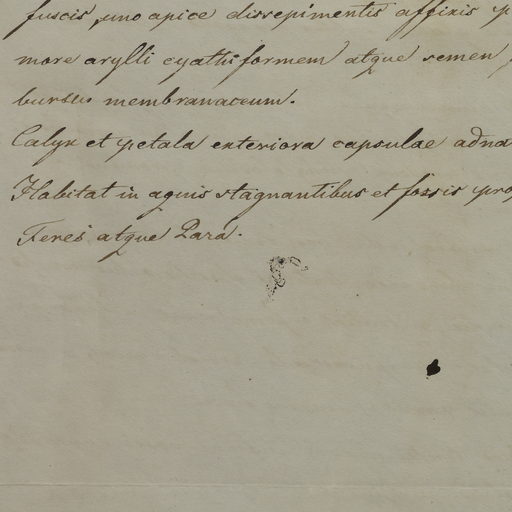 fuscis, uno apice dissepimentis affixis p
more arylli cyathiformem atque semen,
bursus membranaceum.
Calyx et petala exteriora capsulae adna
Habitat in aquis stagnantibus et fossis pro
Feres atque Para.